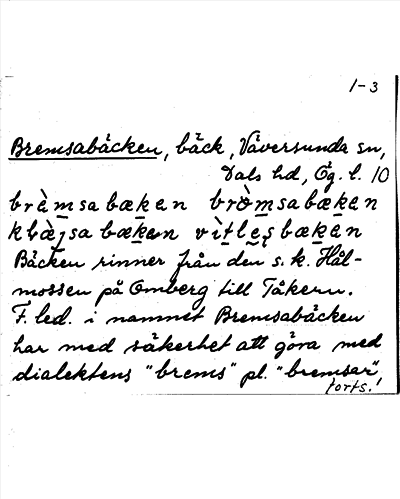 1-3
Bremsabäcken, bäck, Väversunda sn,
Dals hd, Ög. l. 10
brèm̲sabæk̲en bròm̲sabæk̲en
bæk̲en bæk̲en
Bäcken rinner från den s.k. Hål-
mossen på Omberg till Tåkern.
F. led. i namnet Bremsabäcken
har med säkerhet att göra med
dialektens "brems" pl. "bremsar"
forts.!